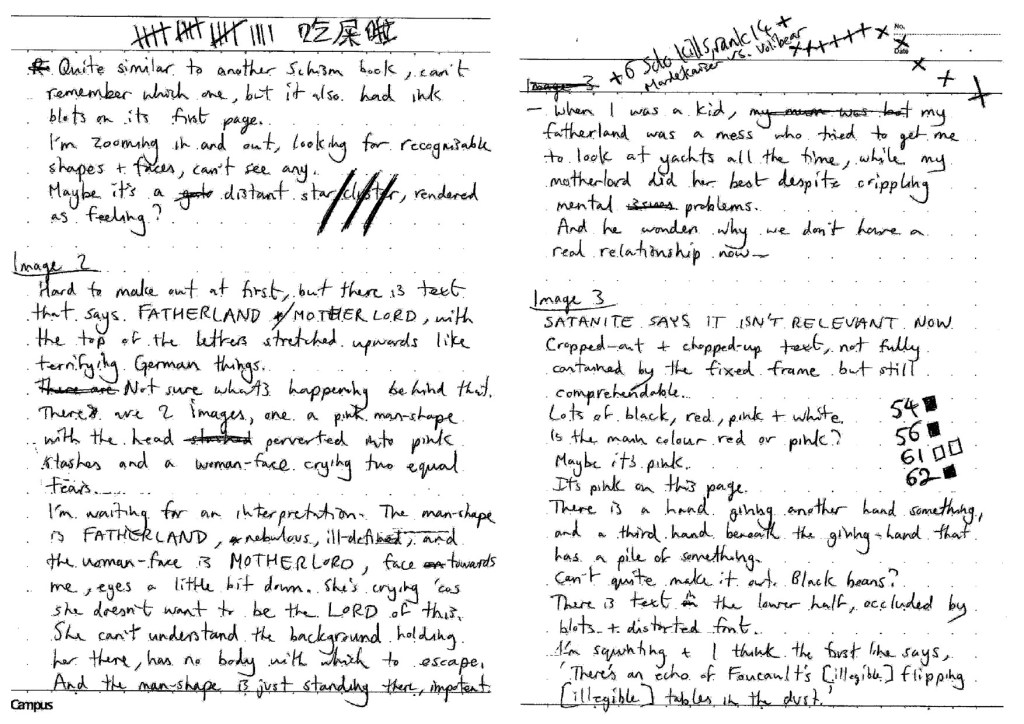 吃屎啦
Quite similar to another Schism book, can't
remember which one, but it also had ink
blots on its first page.
I'm zooming in and out, looking for recognisable
shapes + faces, can't see any.
Maybe it's a distant star cluster, rendered
as feeling?
Image 2
Hard to make out at first, but there is text
that says FATHERLAND / MOTHERLORD, with
the top of the letters stretched upwards like
terrifying German things.
There are Not sure what's happening behind that.
There's are 2 images, one a pink man-shape
with the head perverted into pink
slashes and a woman-face crying two equal
tears.
I'm waiting for an interpretation. The man-shape
is FATHERLAND, nebulous, ill-defined, and
the woman-face is MOTHERLORD, face towards
me, eyes a little bit down. She's crying 'cos
she doesn't want to be the LORD of this.
She can't understand the background holding
her there, has no body with which to escape.
And the man-shape is just standing there, impotent.
Campus
+6 Solo kills, rank 14 +
Mordekaiser vs. Volibear
No.
Date
Image 3
– When I was a kid, my mum was but my
fatherland was a mess who tried to get me
to look at yachts all the time, while my
motherlord did her best despite crippling
mental issues problems.
And he wonders why we don't have a
real relationship now–
Image 3
SATANITE SAYS IT ISN'T RELEVANT NOW.
Cropped-out + chopped-up text, not fully
contained by the fixed frame but still
comprehendable.
Lots of black, red, pink + white.
Is the main colour red or pink?
Maybe it's pink.
It's pink on this page.
54
56
61
62
There is a hand giving another hand something,
and a third hand beneath the giving-hand that
has a pile of something.
Can't quite make it out. Black beans?
There is text in the lower half, occluded by
blots + distorted font.
I'm squinting + I think the first line says,
'There's an echo of Foucault's [illegible] flipping
[illegible] tables in the dust.'